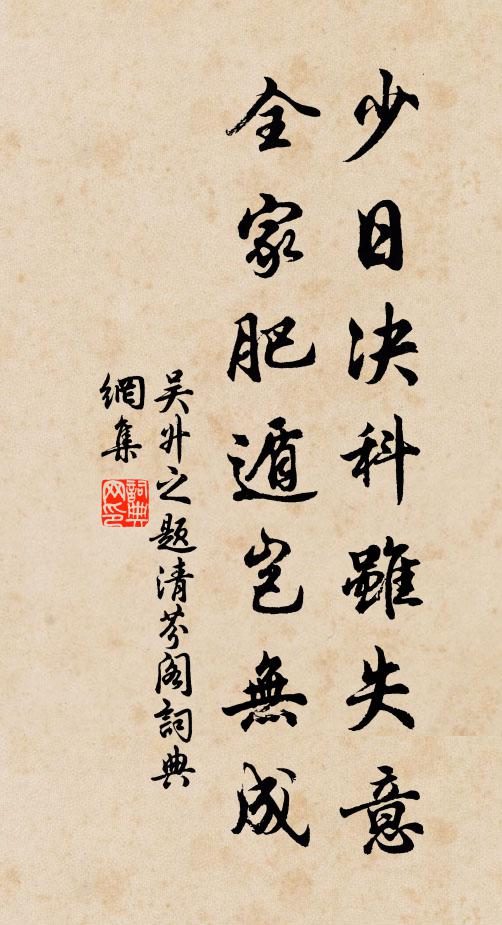 少日決科雖失意
全家肥遁豈無成
吴升之题清芬阁詞典
網集
詞典
网印